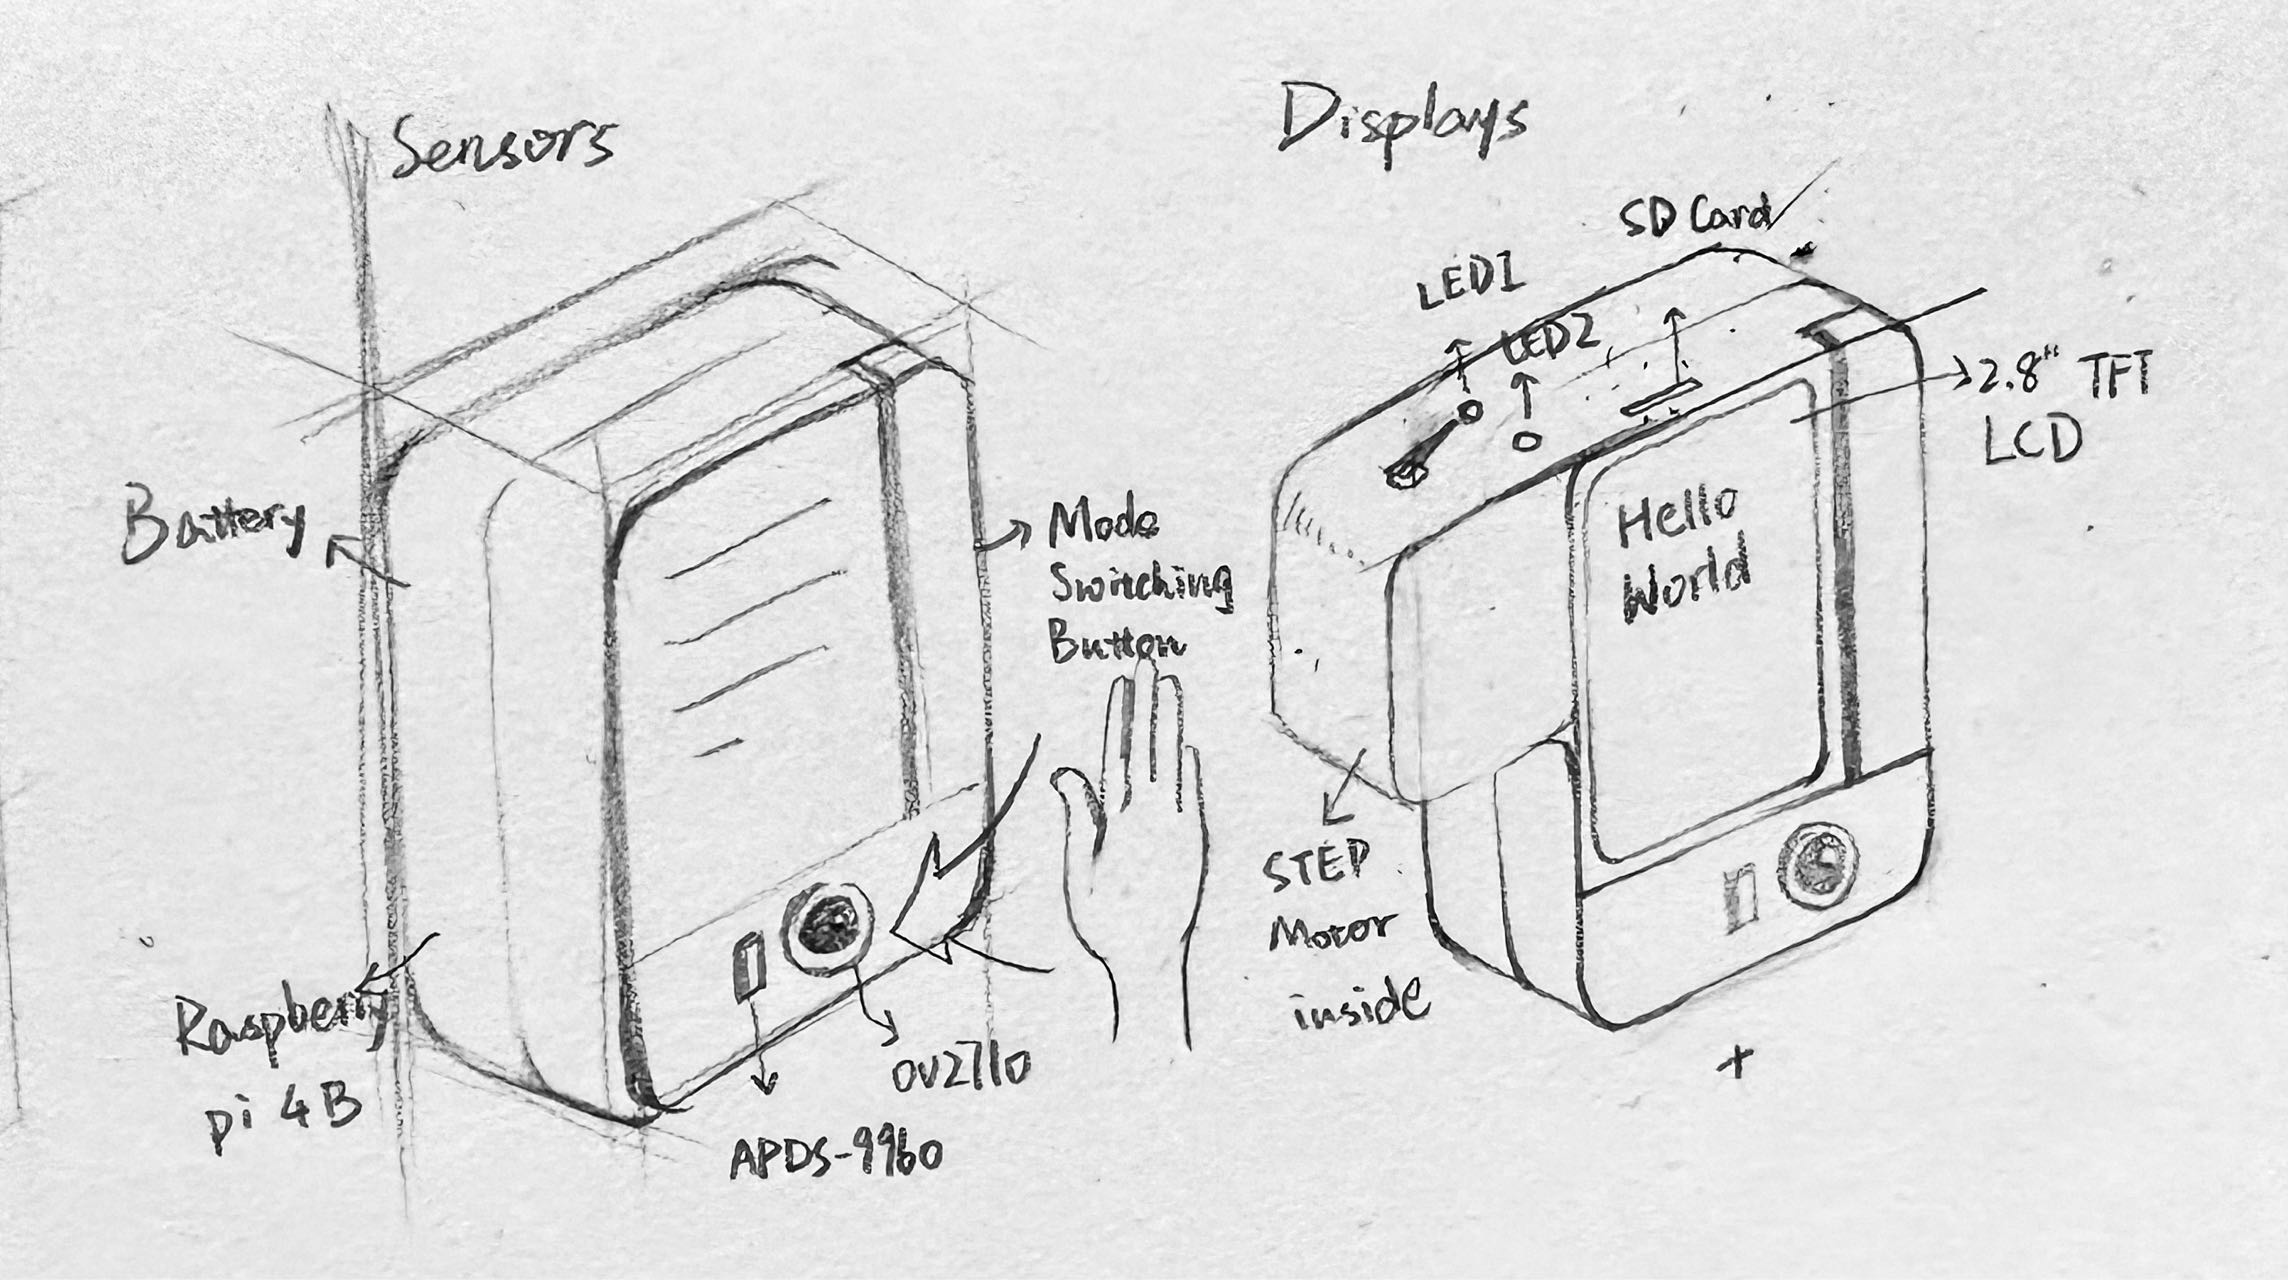 Sensors
Battery
Mode
Switching
Button
Raspberry
pi 4B
OV2710
APDS-9960
Displays
SD Card
LED1
LED2
2.8" TFT
LCD
Hello
World
STEP
Motor
inside
+